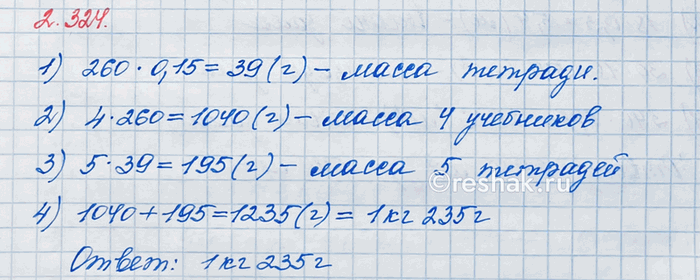 2.324.
1) 260 · 0,15 = 39 (г) – масса тетради.
2) 4 · 260 = 1040 (г) – масса 4 учебников
3) 5 · 39 = 195 (г) – масса 5 тетрадей
©reshak.ru
4) 1040 + 195 = 1235 (г) = 1 кг 235 г
Ответ: 1 кг 235 г